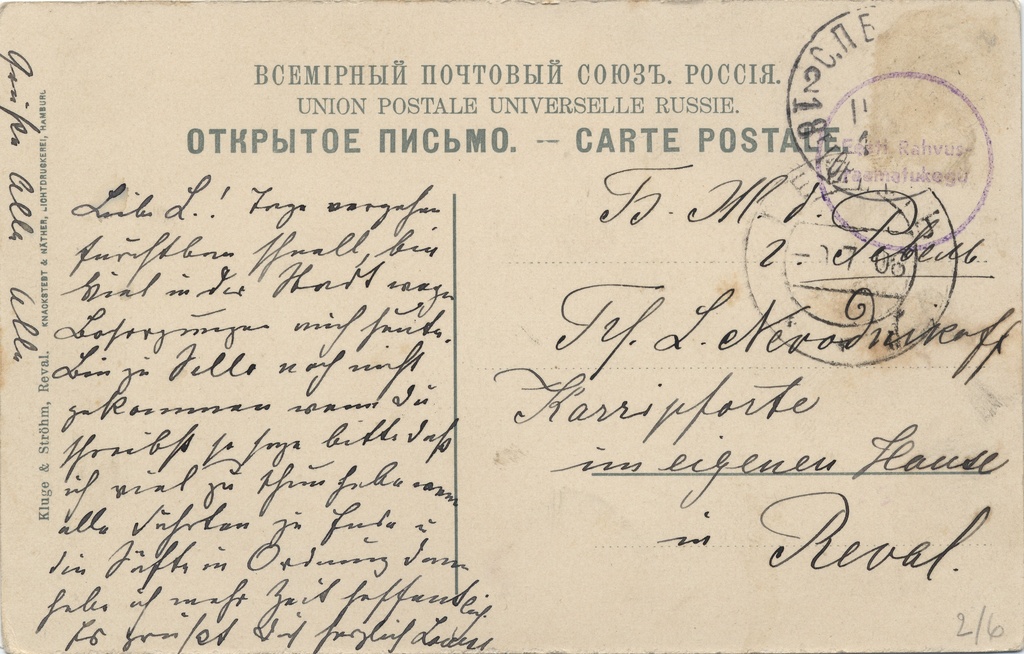 ВСЕМІРНЫЙ ПОЧТОВЫЙ СОЮЗЪ. РОССІЯ.
UNION POSTALE UNIVERSELLE RUSSIE.
ОТКРЫТОЕ ПИСЬМО. — CARTE POSTALE.
С.П.Б
218
Eesti Rahvus-
Raamatukogu
7 06
Liebe L.! Tage vergehen
furchtbar schnell, bin
viel in der Stadt wegen
Besorgungen auch heute.
Bin zu Sello noch nicht
gekommen wenn Du
schreibst so sage bitte daß
ich viel zu thun habe wenn
alle Fahrten zu Ende u
die in Ordnung dann
habe ich mehr Zeit hoffentlich
Es grüßt Dich herzlich
Grüße Alle Alle
Г. Ревель
L. Nevodnikoff
Karripforte
im eigenen Hause
in Reval.
Kluge & Ströhm, Reval.
KNACKSTEDT & NÄTHER, LICHTDRUCKEREI, HAMBURG
2/6